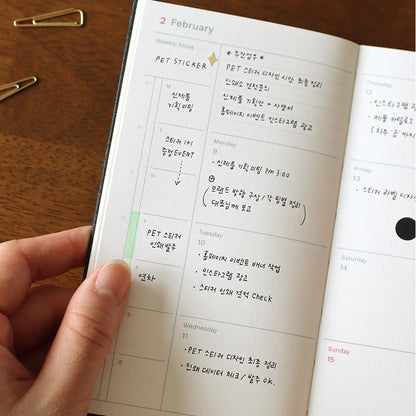 2 February
Weekly focus
PET STICKER
M
신제품
기획미팅
T
스티커 1+1
증정 EVENT
W
T
PET 스티커
인쇄 발주
F
연차
S
S
* 주간업무 *
PET 스티커 디자인 시안 최종 정리
인쇄소 견적문의
신제품 기획안 + 사양서
홈페이지 이벤트 인스타그램 광고
Monday
9
• 신제품 기획 미팅 PM 3:00
브랜드 방향 구상 / 각 팀별 정리
대표님께 보고
Tuesday
10
• 홈페이지 이벤트 배너 작업
• 인스타그램 광고
• 스티커 인쇄 견적 Check
Wednesday
11
• PET 스티커 디자인 최종 정리
• 인쇄 데이터 체크 / 발주 OK.
Thursday
12
• 인스타
• 제품
Friday
13
• 스티커 라벨 디자
Saturday
14
Sunday
15